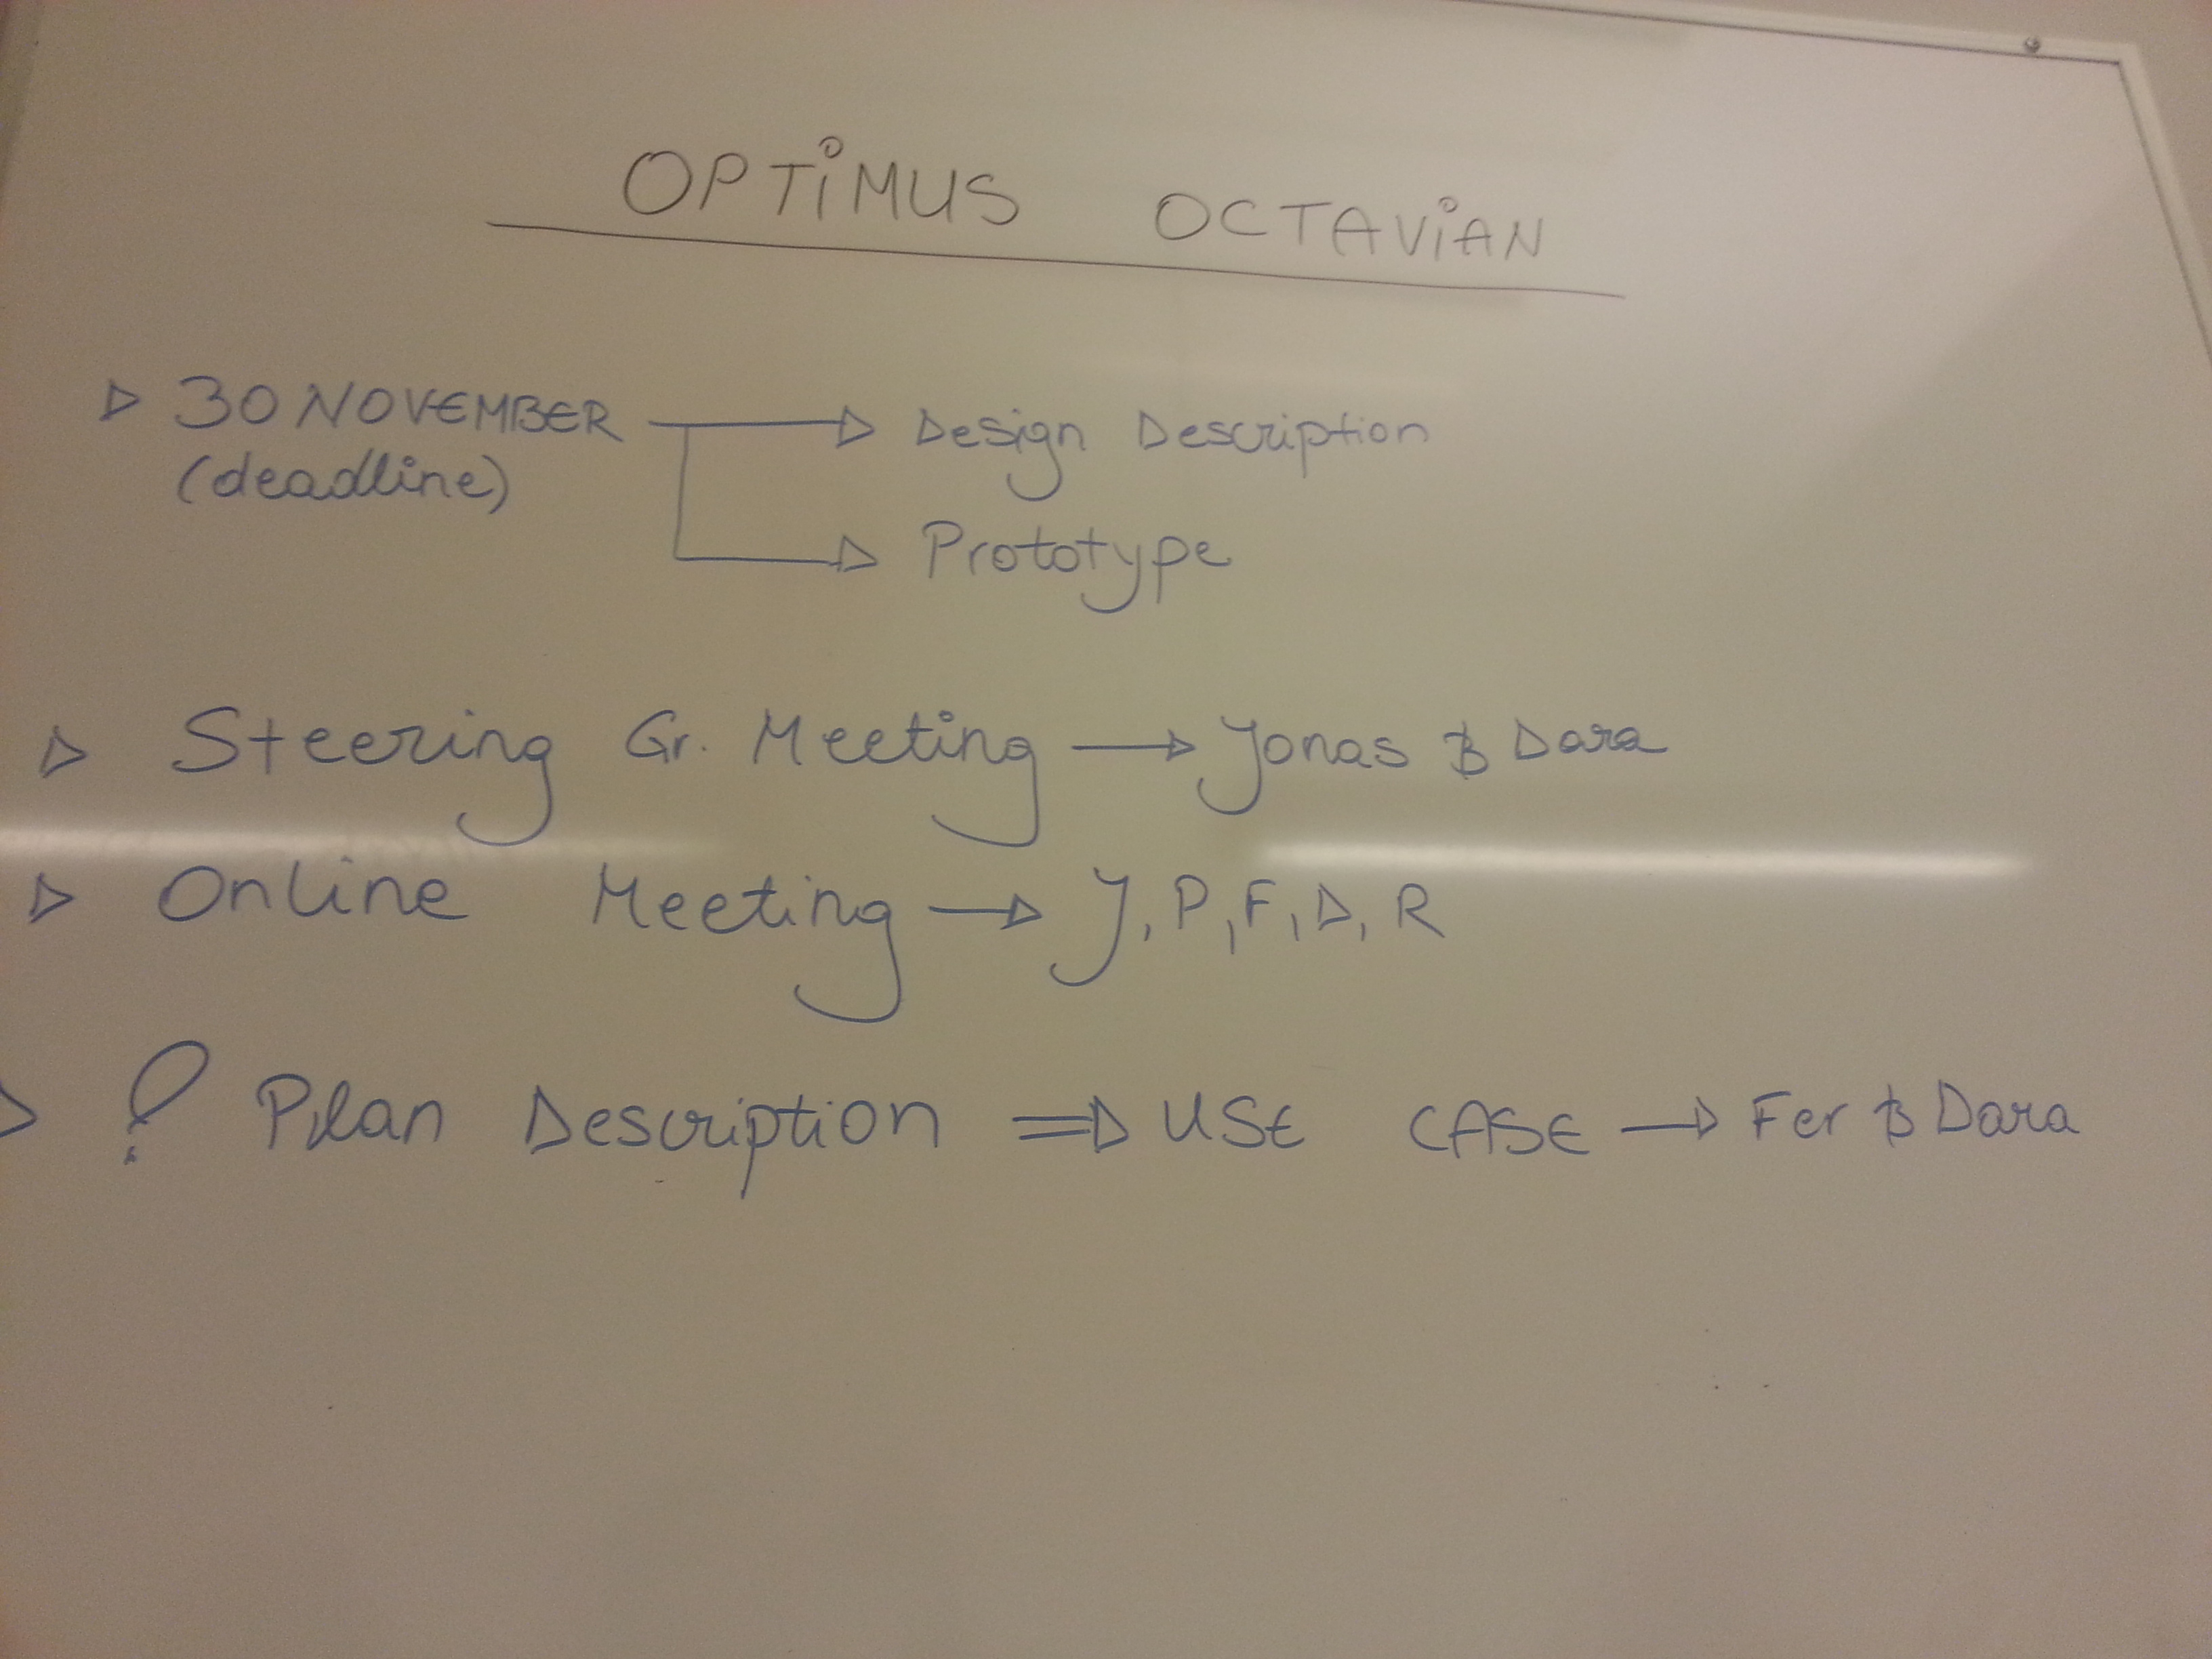 OPTiMUS OCTAViAN
▷ 30 NOVEMBER → Design Description
(deadline)
→ Prototype
▷ Steering Gr. Meeting → Jonas & Dara
▷ Online Meeting → J, P, F, D, R
▷ ? Plan Description ⇒ USE CASE → Fer & Dara